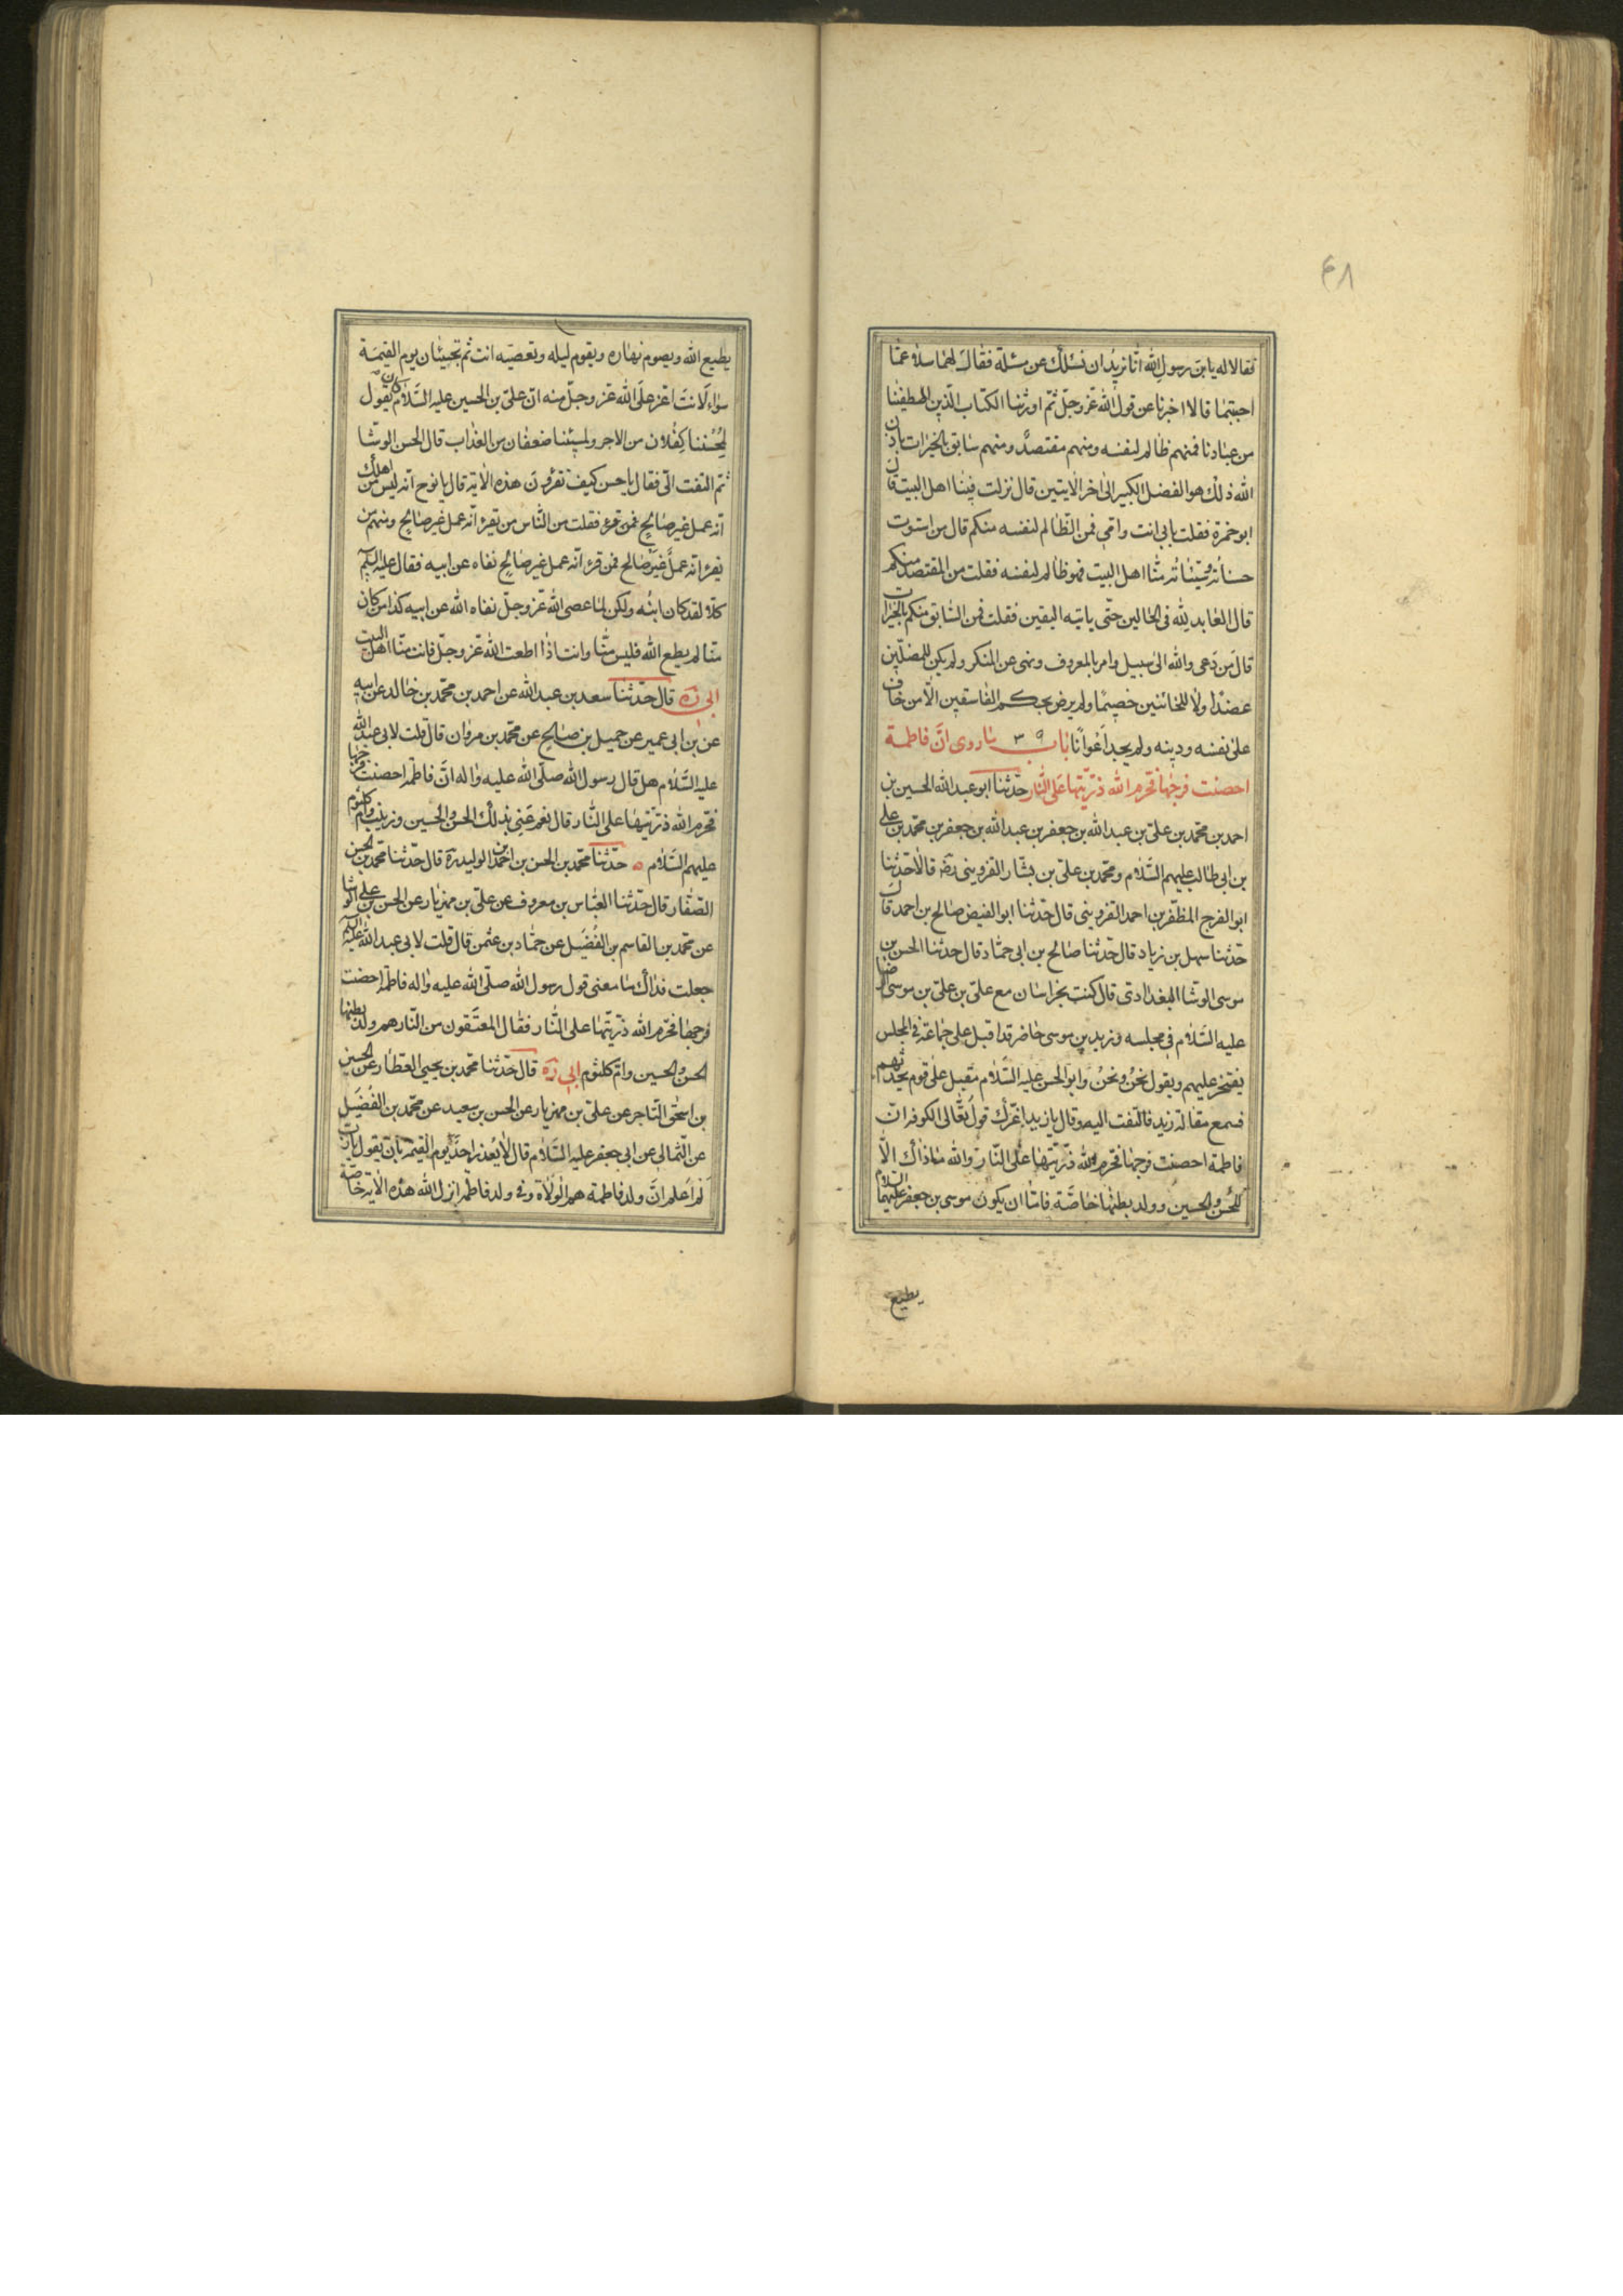 ۴۸
فقالا له يا بن رسول الله انا نريد ان نسئلك عن مسئلة فقال لهما سلا عما
احببتما قالا اخبرنا عن قول الله عز وجل ثم اورثنا الكتاب الذين اصطفينا
من عبادنا فمنهم ظالم لنفسه ومنهم مقتصد ومنهم سابق بالخيرات باذن
الله ذلك هو الفضل الكبير الى اخر الايتين قال نزلت فينا اهل البيت قال
ابو حمزة فقلت بابي انت وامي فمن الظالم لنفسه منكم قال من استوت
حسناته وسيئاته منا اهل البيت فهو ظالم لنفسه فقلت من المقتصد منكم
قال العابد لله في الحالين حتى ياتيه اليقين فقلت فمن السابق منكم بالخيرات
قال من دعى والله الى سبيل وامر بالمعروف ونهى عن المنكر ولم يكن للمضلين
عضدا ولا للخائنين خصيما ولم يرض بحكم الفاسقين الا من خاف
على نفسه ودينه ولم يجد اعوانا باب ۳۹ ما روى ان فاطمة
احصنت فرجها فحرم الله ذريتها على النار حدثنا ابو عبد الله الحسين بن
احمد بن محمد بن علي بن عبد الله بن جعفر بن عبد الله بن جعفر بن محمد بن علي
بن ابي طالب عليهم السلام ومحمد بن علي بن بشار القزويني رضه قالا حدثنا
ابو الفرج المظفر بن احمد القزويني قال حدثنا ابو الفيض صالح بن احمد قال
حدثنا سهل بن زياد قال حدثنا صالح بن ابي حماد قال حدثنا الحسن بن
موسى الوشا البغدادي قال كنت بخراسان مع علي بن علي بن موسى الرضا
عليه السلام في مجلسه وزيد بن موسى حاضر قد اقبل على جماعة في المجلس
يفتخر عليهم ويقول نحن ونحن وابو الحسن عليه السلام مقبل على قوم يحدثهم
فسمع مقالة زيد فالتفت اليه وقال يا زيد اغرك قول بقالى الكوفة ان
فاطمة احصنت فرجها فحرم الله ذريتها على النار والله ما ذاك الا
للحسن والحسين وولد بطنها خاصة فاما ان يكون موسى بن جعفر عليهما السلام
يطيع
يطيع الله ويصوم نهاره ويقوم ليله وتعصيه انت ثم تجيئان يوم القيمة
سواء لانت اعز على الله عز وجل منه ان علي بن الحسين عليه السلام كان يقول
لمحسننا كفلان من الاجر ولمسيئنا ضعفان من العذاب قال الحسن الوشا
ثم التفت الي فقال يا حسن كيف تقرؤن هذه الاية قال يا نوح انه ليس من اهلك
انه عمل غير صالح فمن قرء فقلت من الناس من تقرء انه عمل غير صالح ومنهم من
يقرء انه عمل غير صالح فمن قرء انه عمل غير صالح نفاه عن ابيه فقال عليه السلم
كلا لقد كان ابنه ولكن لما عصى الله عز وجل نفاه الله عن ابيه كذا من كان
منا لم يطع الله فليس منا وانت اذا اطعت الله عز وجل فانت منا اهل البيت
ابي ره قال حدثنا سعد بن عبد الله عن احمد بن محمد بن خالد عن ابيه
عن بن ابي عمير عن جميل بن صالح عن محمد بن مروان قال قلت لابي عبد الله
عليه السلام هل قال رسول الله صلى الله عليه واله ان فاطمة احصنت فرجها
فحرم الله ذريتها على النار قال نعم عنى بذلك الحسن والحسين وزينب وام كلثوم
عليهم السلام ه حدثنا محمد بن الحسن بن احمد بن الوليد ره قال حدثنا محمد بن الحسن
الصفار قال حدثنا العباس بن معروف عن علي بن مهزيار عن الحسن بن علي الوشا
عن محمد بن القاسم بن الفضيل عن حماد بن عثمن قال قلت لابي عبد الله عليه السلم
جعلت فداك ما معنى قول رسول الله صلى الله عليه واله فاطمة احصنت
فرجها فحرم الله ذريتها على النار فقال المعتقون من النار هم ولد بطنها
الحسن والحسين وام كلثوم ابي ره قال حدثنا محمد بن يحيى العطار عن الحسين
بن اسحق التاجر عن علي بن مهزيار عن الحسن بن سعيد عن محمد بن الفضيل
عن الثمالي عن ابي جعفر عليه السلام قال لا يعذر احد يوم القيمة بان يقول يا رب
لم اعلم ان ولد فاطمة هم الولاة وفي ولد فاطمة انزل الله هذه الاية خاصة